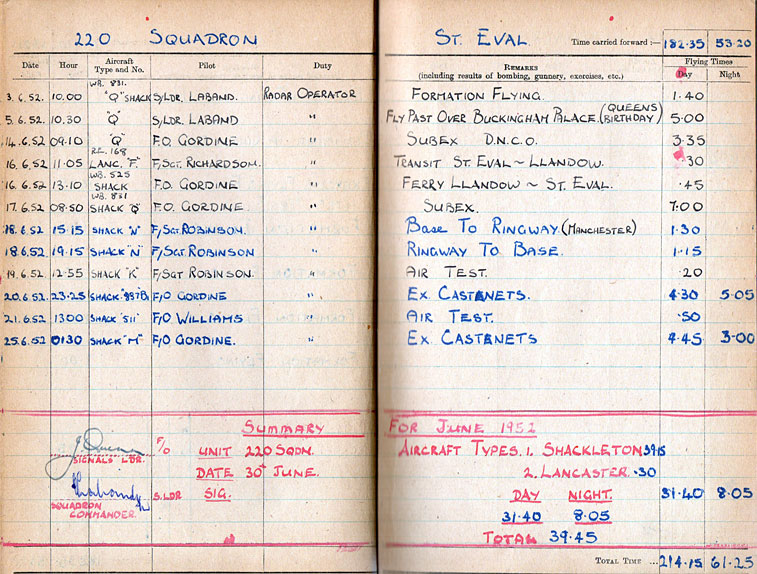 220 SQUADRON
ST. EVAL. Time carried forward :— 182.35 53.20
Date Hour Aircraft Type and No. Pilot Duty REMARKS (including results of bombing, gunnery, exercises, etc.) Flying Times Day Night
WB. 831.
3.6.52. 10.00 "Q" SHACK S/LDR. LABAND. RADAR OPERATOR FORMATION FLYING. 1.40
5.6.52. 10.30 "Q" S/LDR. LABAND " FLY PAST OVER BUCKINGHAM PALACE. (QUEENS BIRTHDAY) 5.00
14.6.52 09.10 "Q" F.O. GORDINE " SUBEX D.N.C.O. 3.35
RE. 168
16.6.52 11.05 LANC. "F". F/SGT. RICHARDSON. " TRANSIT ST. EVAL ~ LLANDOW. .30
WB. 525
16.6.52 13.10 SHACK F.O. GORDINE " FERRY LLANDOW ~ ST. EVAL. .45
WB. 831
17.6.52 08.50 SHACK "Q" F.O. GORDINE " SUBEX. 7.00
18.6.52 15.15 SHACK "N" F/SGT. ROBINSON. " BASE TO RINGWAY (MANCHESTER) 1.30
18.6.52 19.15 SHACK "N" F/SGT ROBINSON " RINGWAY TO BASE. 1.15
19.6.52 12.55 SHACK "K" F/SGT ROBINSON. " AIR TEST. .20
20.6.52 23.25 SHACK. F/O GORDINE " EX. CASTENETS. 4.30 5.05
21.6.52 1300 SHACK F/O WILLIAMS " AIR TEST. .50
25.6.52 0130 SHACK "M" F/O GORDINE. " EX. CASTENETS 4.45 3.00
SUMMARY FOR JUNE 1952
J. Quinn F/O UNIT 220 SQDN. AIRCRAFT TYPES. 1. SHACKLETON 39.15
SIGNALS LDR.
DATE 30th JUNE. 2. LANCASTER .30
S.LDR SIG. DAY NIGHT. 31.40 8.05
SQUADRON COMMANDER.
31.40 8.05
TOTAL 39.45
TOTAL TIME ... 214.15 61.25